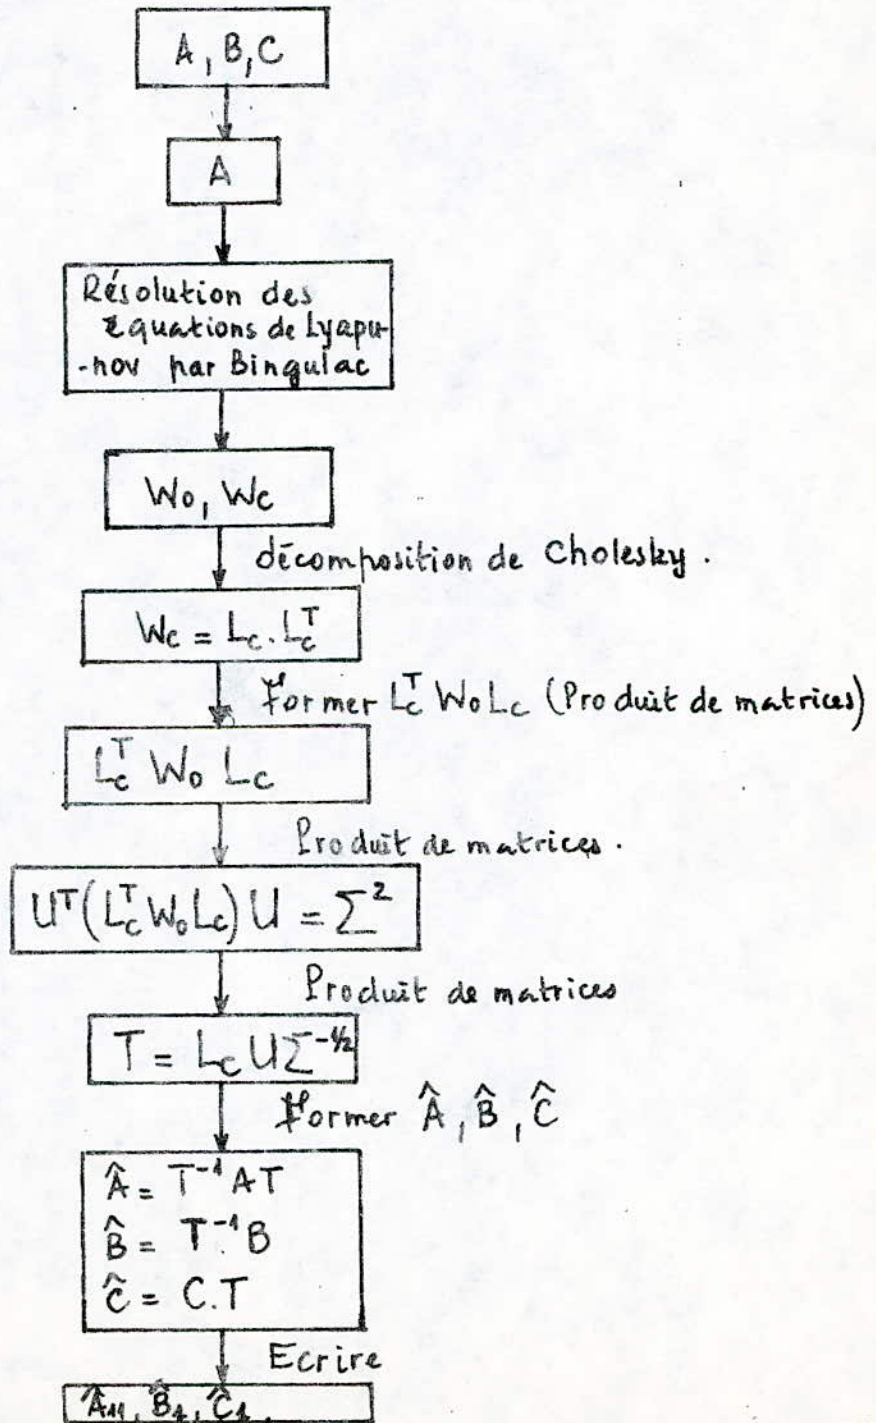 A, B, C
A
Résolution des
Equations de Lyapu-
-nov par Bingulac
Wo, Wc
décomposition de Cholesky.
Wc = Lc. Lc^T
Former Lc^T Wo Lc (Produit de matrices)
Lc^T Wo Lc
Produit de matrices.
U^T(Lc^T Wo Lc) U = Σ^2
Produit de matrices
T = Lc U Σ^-1/2
Former Â, B̂, Ĉ
Â = T^-1 A T
B̂ = T^-1 B
Ĉ = C.T
Ecrire
Â11, B̂1, Ĉ1